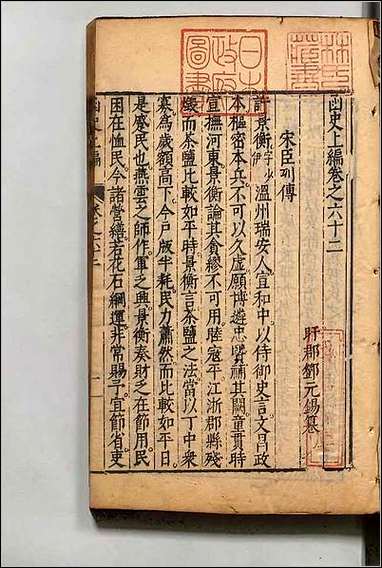 函史上編卷之六十二
盱郡鄧元錫纂
宋臣列傳
許景衡字少伊溫州瑞安人宣和中以侍御史言文昌政
本樞密本兵不可以久虛願博遴忠賢補其闕童貫時
宣撫河東景衡論其貪繆不可用睦寇平江浙郡縣殘
燬而茶鹽比較如平時景衡言茶鹽之法當以丁中衆
寡為歲額高下今戶版半耗民力蕭然而比較如平日
是蹙民也燕雲之師作軍之興景衡奏財之在節用民
困在恤民今諸營繕若花石綱運非常賜予宜節省吏
日本
政府
圖書